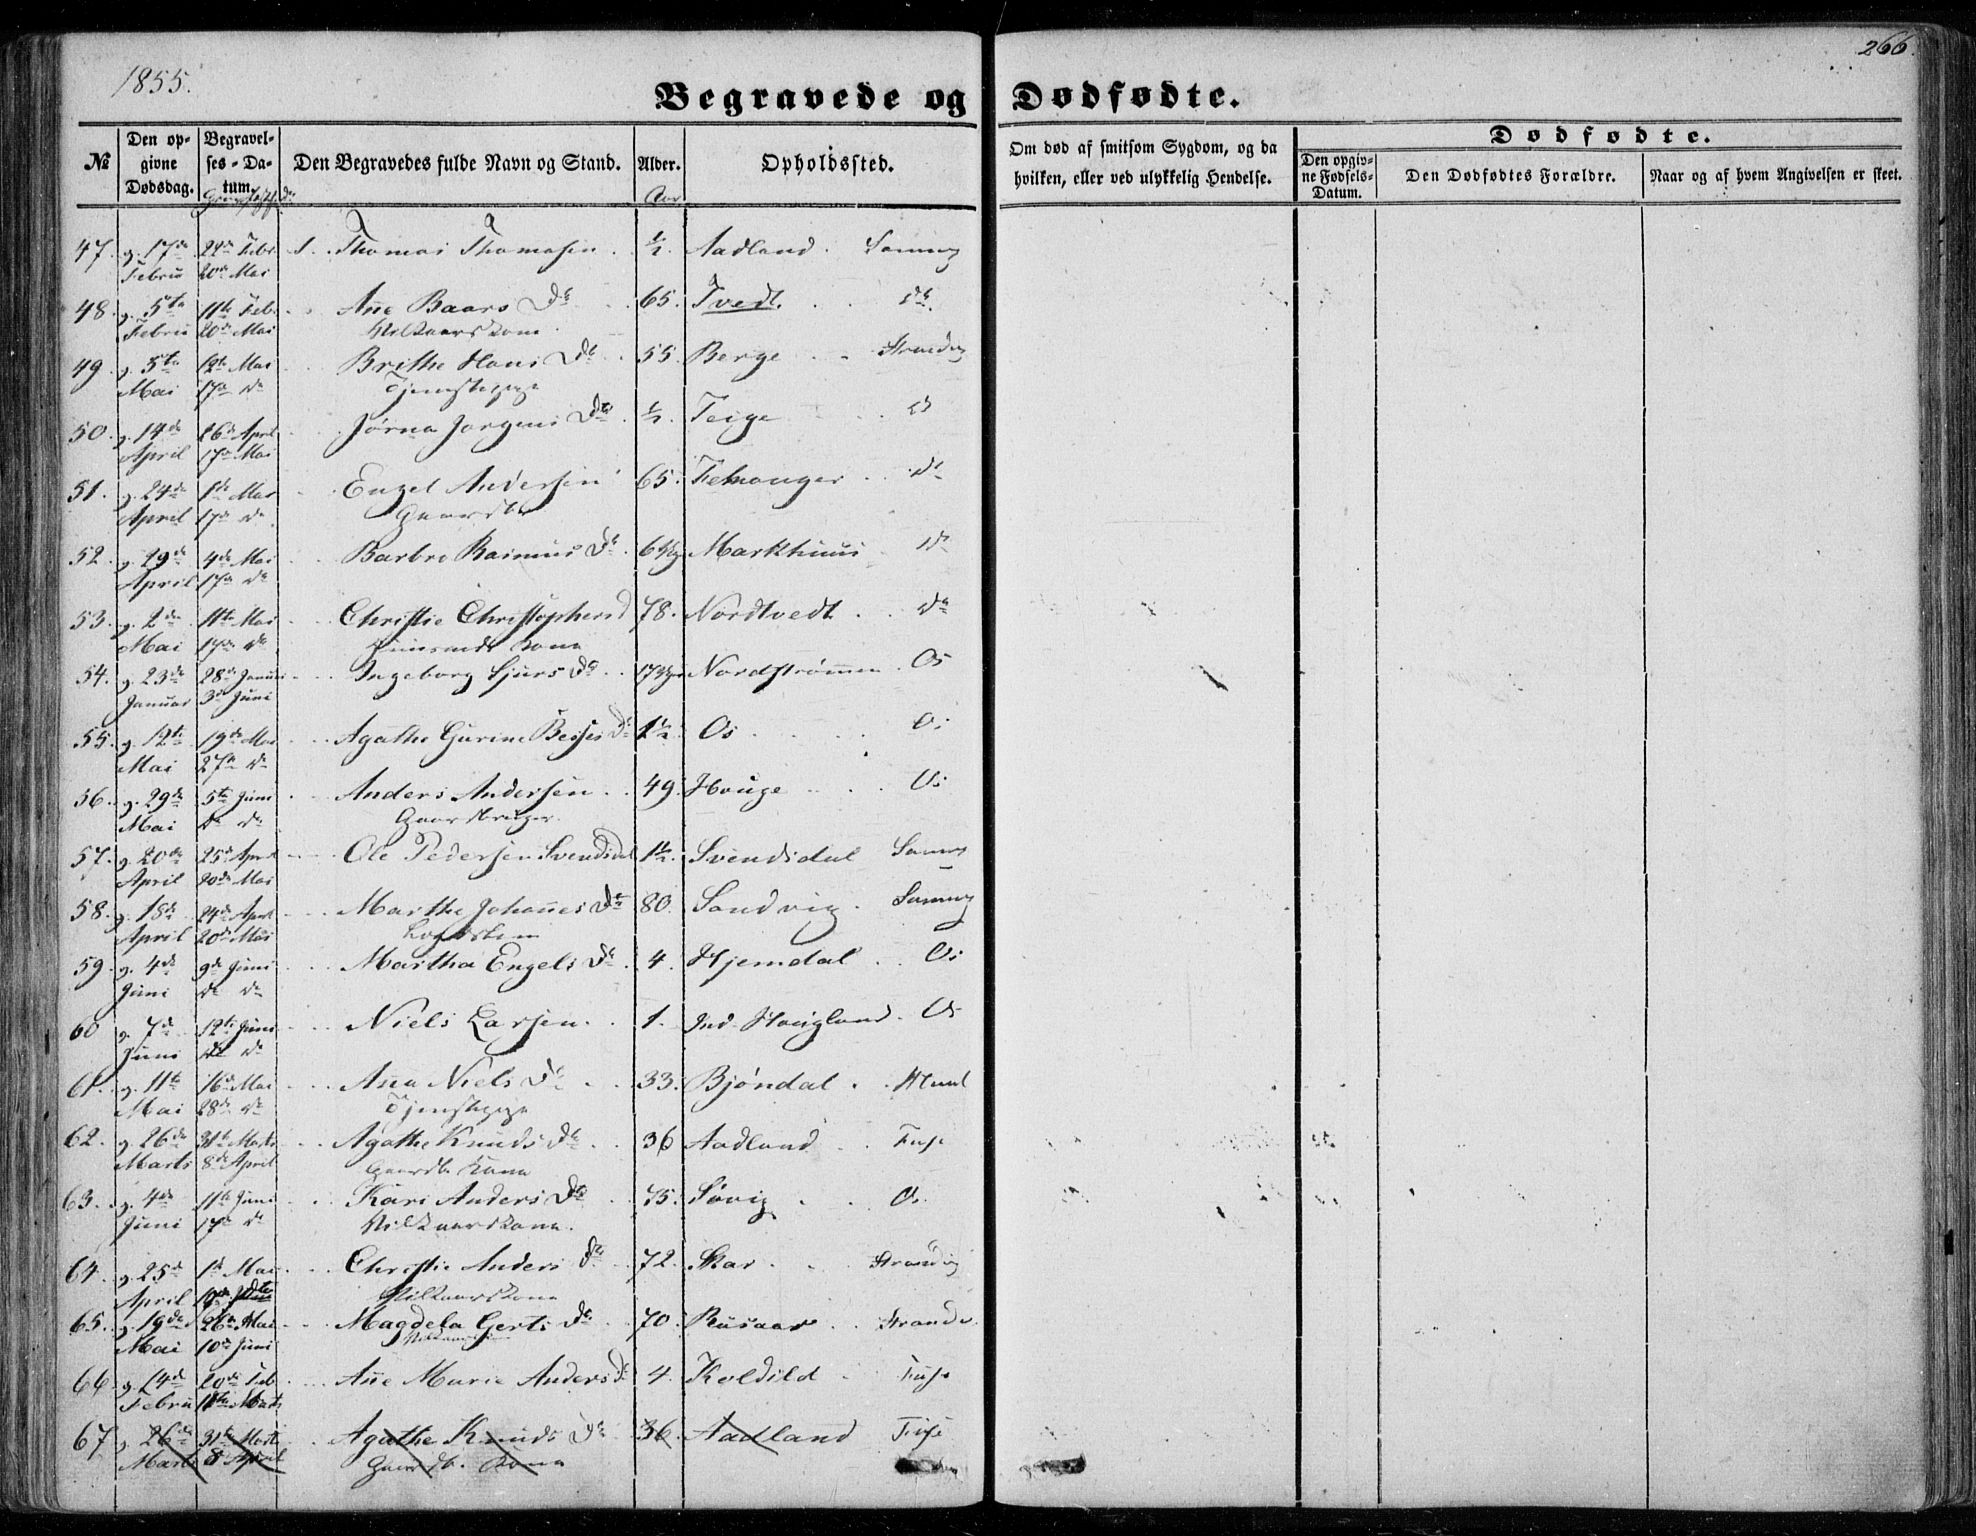 1855.
266.
Begravede og Dødfødte.
№
Den opgivne Dødsdag.
Begravelses-Datum.
Den Begravedes fulde Navn og Stand.
Alder.
Opholdssted.
Om død af smitsom Sygdom, og da hvilken, eller ved ulykkelig Hendelse.
Dødfødte.
Den opgivne Fødsels-Datum.
Den Dødfødtes Forældre.
Naar og af hvem Angivelsen er skeet.
Aar
47. g. 17de 24de Febr Thomas Thomasen ½ Aadland Samnog
Febru 20de Mai
48. g. 5te 11te Febr Añe Baars Dr 65. Tvedt. do
Febru 20de Mai Vilkaarskone
49. g. 5te 12te Mai Brithe Hans Dr 55 Berge Strandvig
Mai 17de do Tjenestepige
50. g. 14de 26de April Jørna Jørgens Dr ½. Teige do
April 17de Mai
51. g. 24de 1ste Mai Engel Andersen 65. Femanger do
April 17de do Gaardbr
52. g. 29de 4de Mai Barbro Rasmus Dr Markhuus do
April 17de do
53. g. 2de 11te Mai Christie Christophersd 78. Nordtvedt do
Mai 17de do Kone
54. g. 23de 28de Januar Ingeborg Sjurs Dr Nordstrømmen Os
Januar 3de Juni
55. g. 12te 19de Mai Agathe Gurine Besses Dr 1½ Os Os
Mai 27de do
56. g. 29de 5te Juni Anders Andersen 49. Houge Os
Mai do do Gaardbruger
57. g. 20de 25de April Ole Pedersen Svendsdal 1½. Svendsdal Samnog
April 20de Mai
58. g. 18de 24de April Marthe Johañes Dr 80. Sandvig Samnog
April 20de Mai
59. g. 4de 9de Juni Martha Engels Dr 4. Hjemdal Os
Juni do do
60 g. 7de 12te Juni Niels Larsen. 1. Ind. Hougland Os
Juni do do
61. g. 11te 16de Mai Aña Niels Dr 33. Bjøndal
Mai 28de do Tjenestepige
62. g. 26de 31te Marts Agathe Knuds Dr 36 Aadland Fuse
Marts 8de April Gaardb. Kone
63. g. 4de 11te Juni Kari Anders Dr 75. Søvig Os
Juni 17de do Vilkaarskone.
64. g. 25de 1ste Mai Christie Anders Dr 72. Skar Strandvig
April Vilkaarskone
65. g. 19de 26de Mai Magdela Gerts Dr 70. Strandv.
Mai 10de Juni
66. g. 14de 20de Feb Añe Marie Anders Dr 4. Koldild Fuse
Febru 11te Marts
67. g. 26de 31te Marts Agathe Knuds Dr 36. Aadland Fuse
Marts 8 April Gaardb. Kone